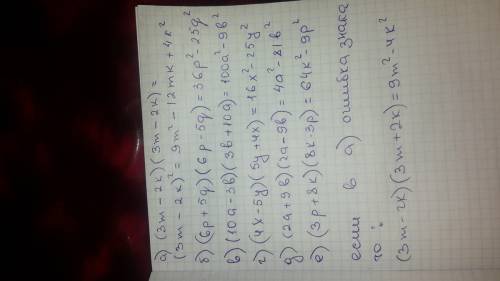 а) (3m - 2k)(3m - 2k) =
(3m - 2k)² = 9m² - 12mk + 4k²
б) (6p + 5q)(6p - 5q) = 36p² - 25q²
в) (10a - 3b)(3b + 10a) = 100a² - 9b²
г) (4x - 5y)(5y + 4x) = 16x² - 25y²
д) (2a + 9b)(2a - 9b) = 4a² - 81b²
е) (3p + 8k)(8k - 3p) = 64k² - 9p²
если в а) ошибка знака
то:
(3m - 2k)(3m + 2k) = 9m² - 4k²